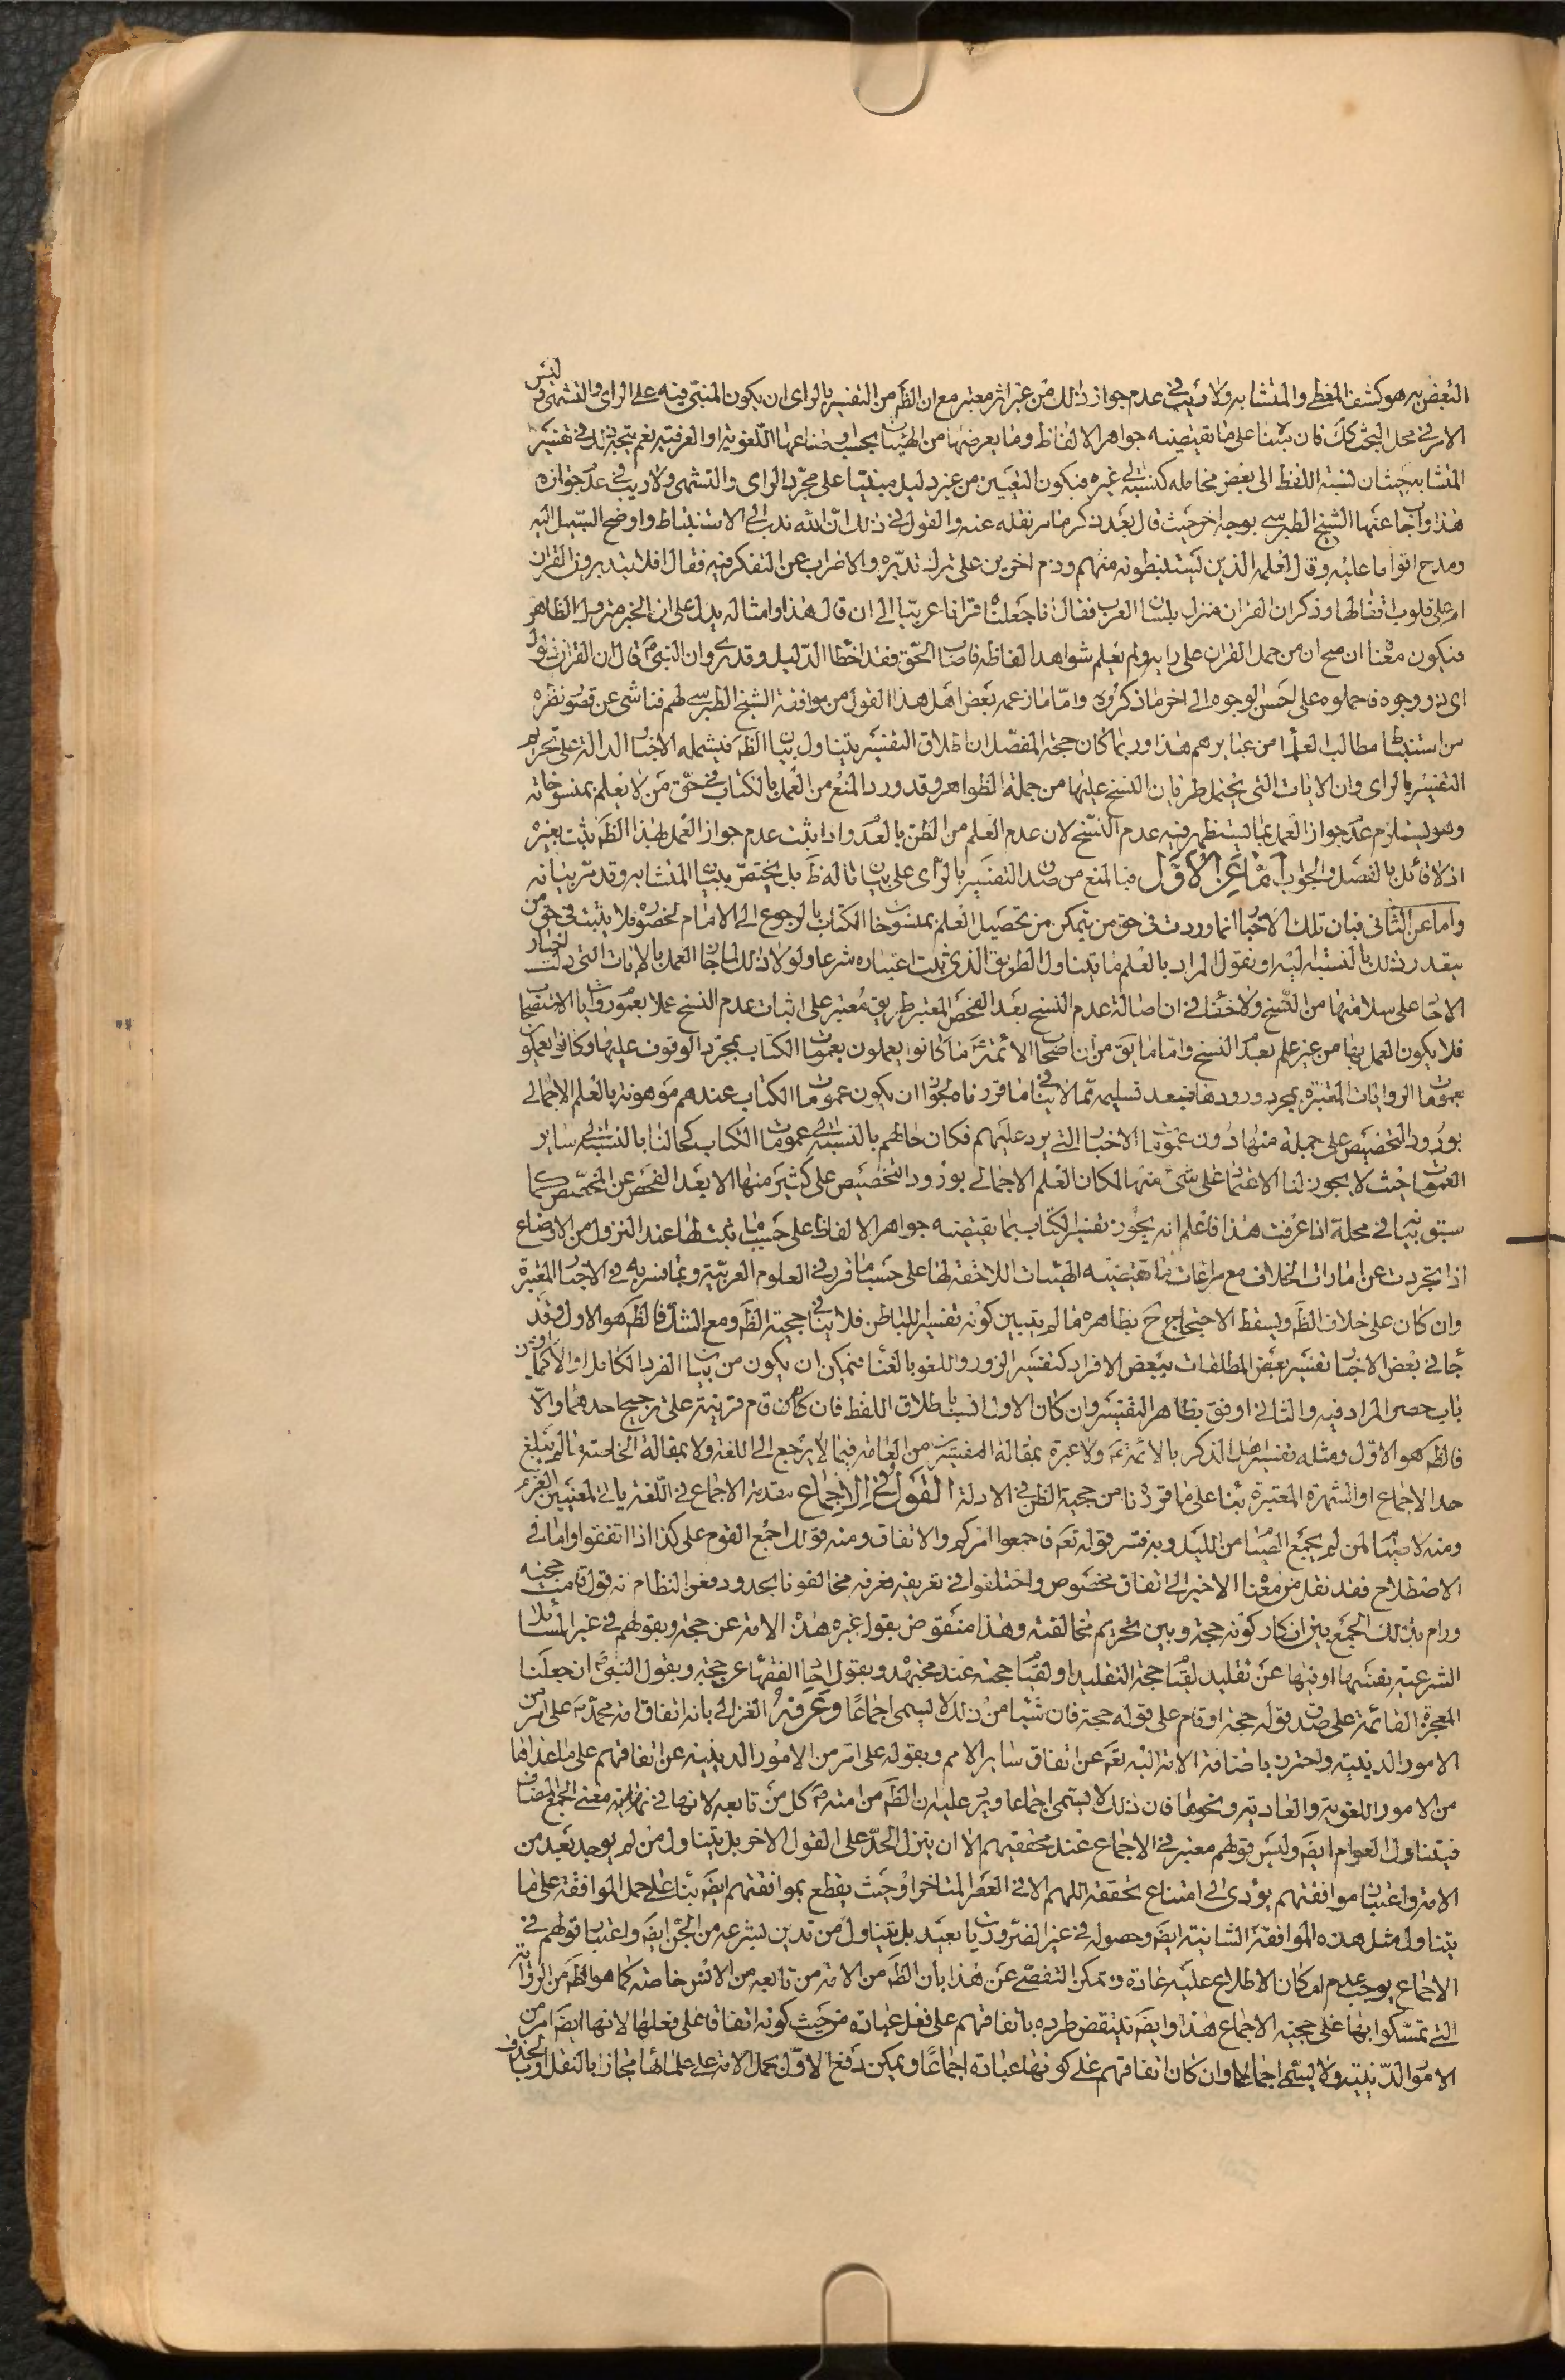 البعض به هو كشف المغطى والمتشابه ولا ريب في عدم جواز ذلك من غير اثر معتبر مع ان الظ من التفسير بالراى ان يكون المبنى فيه على الراى والتشهى وليس
الامر في محل البحث كك فان بنينا على ما يقتضيه جواهر الالفاظ وما يعرضها من الهيئات بحسب اوضاعها اللغوية او العرفية نعم يتجه ذلك في تفسير
المتشابه حيث ان نسبة اللفظ الى بعض محامله كنسبته الى غيره فيكون التعيين من غير دليل مبنيا على مجرد الراى والتشهى ولا ريب في عدم جوازه
هذا واجاب عنها الشيخ الطبرسي بوجه اخر حيث قال بعد ذكر ما مر نقله عنه والقول في ذلك ان الله ندب الى الاستنباط واوضح السبيل اليه
ومدح اقواما عليه وقال لعلمه الذين يستنبطونه منهم وذم اخرين على ترك تدبره والاضراب عن التفكر فيه فقال افلا يتدبرون القران
ام على قلوب اقفالها وذكر ان القران منزل بلسان العرب فقال انا جعلناه قرانا عربيا الى ان قال هذا وامثاله يدل على ان الخبر متروك الظاهر
فيكون معناه ان صح ان من حمل القران على رايه ولم يعلم شواهد الفاظه فاصاب الحق فقد اخطا الدليل وقد روى ان النبي ص قال ان القران ذلول
اى ذو وجوه فاحملوه على احسن الوجوه الى اخر ما ذكره واما ما زعمه بعض اهل هذا القول من موافقة الشيخ الطبرسي لهم فناشئ عن قصور نظره
من استنباط مطالب العلماء من عبايرهم هذا وربما كان حجة المفصل ان اطلاق التفسير يتناول بيان الظ فيشمله الاخبار الدالة على تحريم
التفسير بالراى وان الايات التى يحتمل طريان النسخ عليها من جملة الظواهر وقد ورد المنع من العمل بالكتاب في حق من لا يعلم بمنسوخاته
وهو يستلزم عدم جواز العمل بما يستظهر فيه عدم النسخ لان عدم العلم من الظن بالعدم واذا ثبت عدم جواز العمل بهذا الظ ثبت بغيره
اذ لا قائل بالفصل والجواب اما عن الاول فبالمنع من صدق التفسير بالراى على بيان ما له ظ بل يختص ببيان المتشابه وقد مر بيانه
واما عن الثانى فبان تلك الاخبار انما وردت في حق من يتمكن من تحصيل العلم بمنسوخات الكتاب بالرجوع الى الامام لحضوره فلا يثبت في حق من
يتعذر ذلك بالنسبة اليه او نقول المراد بالعلم ما يتناول الطريق الذى ثبت اعتباره شرعا ولولا ذلك لما جاز العمل بالايات التى دلت اخبار
الاحاد على سلامتها من النسخ ولا خفاء في ان اصالة عدم النسخ بعد الفحص المعتبر طريق معتبر على اثبات عدم النسخ عملا بعموم روايات الاستصحاب
فلا يكون العمل بها من غير علم بعدم النسخ واما ما يق من ان اصحاب الائمة ع كانوا يعملون بعمومات الكتاب بمجرد الوقوف عليها وكانوا يعملون
بعمومات الروايات المعتبرة بمجرد ورودها فبعد تسليمه مما لا ينافي ما قررناه لجواز ان يكون عمومات الكتاب عندهم موهونة بالعلم الاجمالي
بورود التخصيص على جملة منها دون عمومات الاخبار التي يرد عليهم فكان حالهم بالنسبة الى عمومات الكتاب كحالنا بالنسبة الى ساير
العمومات حيث لا يجوز لنا الاعتماد على شئ منها لمكان العلم الاجمالي بورود التخصيص على كثير منها الا بعد الفحص عن المخصص كما
سبق بيانه في محله اذا عرفت هذا فاعلم انه يجوز تفسير الكتاب بما يقتضيه جواهر الالفاظ على حسب ما يثبت لها عند النزول من الاوضاع
اذا تجردت عن امارات الخلاف مع مراعات ما تقتضيه الهيئات اللاحقة لها على حسب ما قرر في العلوم العربية وبما فسر به في الاخبار المعتبرة
وان كان على خلاف الظ ويسقط الاحتجاج ح بظاهره ما لم يتبين كونه تفسيرا للباطن فلا ينافي حجية الظ ومع الشك فالظ هو الاول وقد
جاء في بعض الاخبار تفسير بعض المطلقات ببعض الافراد كتفسير الزور واللغو بالغناء فيمكن ان يكون من بيان الفرد الكامل او الاكمل او من
باب حصر المراد فيه والثانى اوفق بظاهر التفسير وان كان الاول انسب باطلاق اللفظ فان كان ثم قرينة على ترجيح احدهما والا
فالظ هو الاول ومثله تفسير اهل الذكر بالائمة ع ولا عبرة بمقالة المفسرين من العامة فيما لا يرجع الى اللغة ولا بمقالة الخاصة ما لم تبلغ
حد الاجماع او الشهرة المعتبرة بناء على ما قررنا من حجية الظن في الادلة القول في الاجماع مقدمة الاجماع في اللغة ياتي لمعنيين العزم
ومنه لا صيام لمن لم يجمع الصيام من الليل وبه فسر قوله تعم فاجمعوا امركم والاتفاق ومنه قولك اجمع القوم على كذا اذا اتفقوا واما في
الاصطلاح فقد نقل من معناه الاخير الى اتفاق مخصوص واختلفوا في تعريفه فعرفه مخالفونا بحدود فعن النظام انه قول قامت حجته
ورام بذلك الجمع بين انكار كونه حجة وبين تحريم مخالفته وهذا منقوض بقول غيره هذه الامة عن حجة وبقولهم في غير المسائل
الشرعية بقسميها او فيها عن تقليد لقيام حجة التقليد او لقيام حجته عند مجتهد وبقول احاد الفقهاء عن حجة وبقول النبي ص ان جعلنا
المعجزة القائمة على صدقه حجة او قام على قوله حجة فان شيئا من ذلك لا يسمى اجماعا وعرفه الغزالي بانه اتفاق امة محمد ص على امر من
الامور الدينية واحترز باضافة الامة اليه تعم عن اتفاق ساير الامم وبقوله على امر من الامور الدينية عن اتفاقهم على ما عداها
من الامور اللغوية والعادية ونحوها فان ذلك لا يسمى اجماعا ويرد عليه ان الظ من امته ص كل من تابعه لانها في معنى الجمع المضاف
فيتناول العوام ايض وليس قولهم معتبر في الاجماع عند محققيهم الا ان ينزل الحد على القول الاخر بل يتناول من لم يوجد بعد من
الامة واعتبار موافقتهم يؤدى الى امتناع تحققه اللهم الا في العصر المتاخر او حيث يقطع بموافقتهم ايض بناء على حمل الموافقة على ما
يتناول مثل هذه الموافقة الشانية ايض وحصوله في غير الضروريات بعيد بل يتناول من تدين بشرعه من الجن ايض واعتبار قولهم في
الاجماع يوجب عدم امكان الاطلاع عليه عادة ويمكن التفصي عن هذا بان الظ من الامة من تابعه من الانس خاصة كما هو الظ من الرواية
التي تمسكوا بها على حجية الاجماع هذا وايض ينتقض طرده باتفاقهم على فعل عبادة من حيث كونه اتفاقا على فعلها لانها ايض امر من
الامور الدينية ولا يسمى اجماعا وان كان اتفاقهم على كونها عبادة اجماعا ويمكن دفع الاول بحمل الامة على علمائها مجازا بالنقل او بالحذف